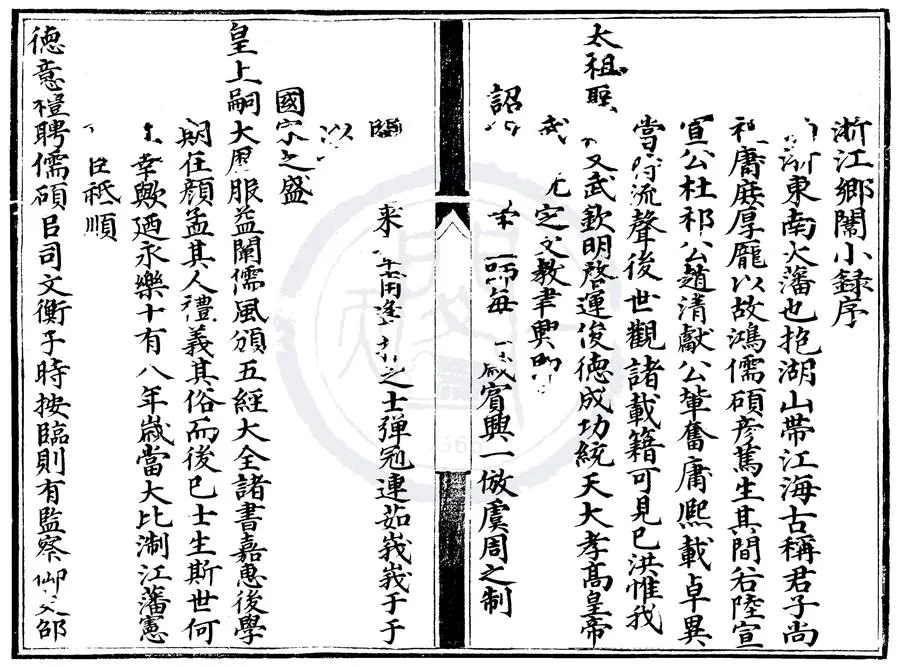 浙江鄉闈小録序
東南大藩也抱湖山帶江海古稱君子尚
庸庬厚龎以故鴻儒碩彦篤生其間若陸宣
宣公杜祁公趙清獻公軰奮庸熈載卓異
當時流聲後世觀諸載籍可見已洪惟我
太祖聖
文武欽明啓運俊德成功統天大孝髙皇帝
武 定文教聿興
詔
賓興一倣虞周之制
臨
来 之士彈冠連茹峩峩于于
國家之盛
皇上嗣大歴服益闡儒風頒五經大全諸書嘉惠後學
期任顔孟其人禮義其俗而後已士生斯世何
幸歟廼永樂十有八年嵗當大比淛江藩憲
臣祗順
德意禮聘儒碩㠯司文衡于時按臨則有監察御史邵